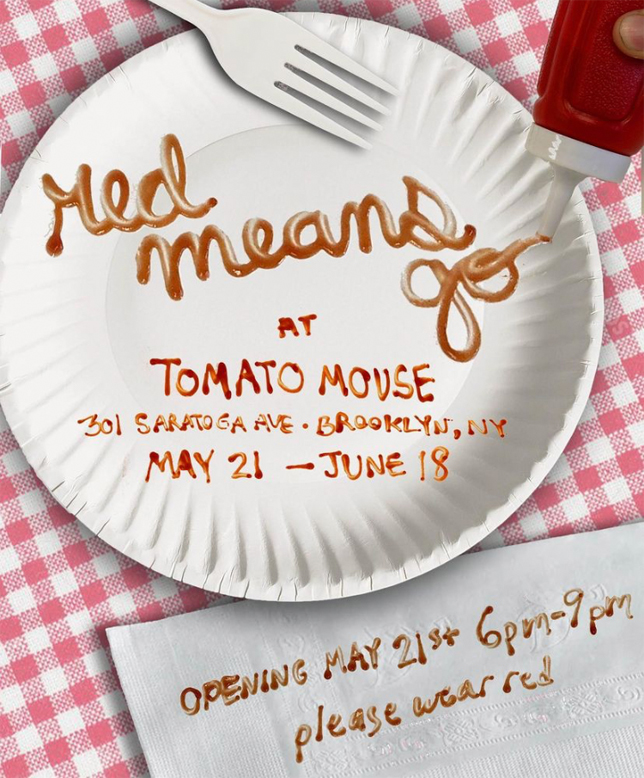 red
means
go
AT
TOMATO MOUSE
301 SARATOGA AVE • BROOKLYN, NY
MAY 21 – JUNE 18
OPENING MAY 21st 6pm-9pm
please wear red